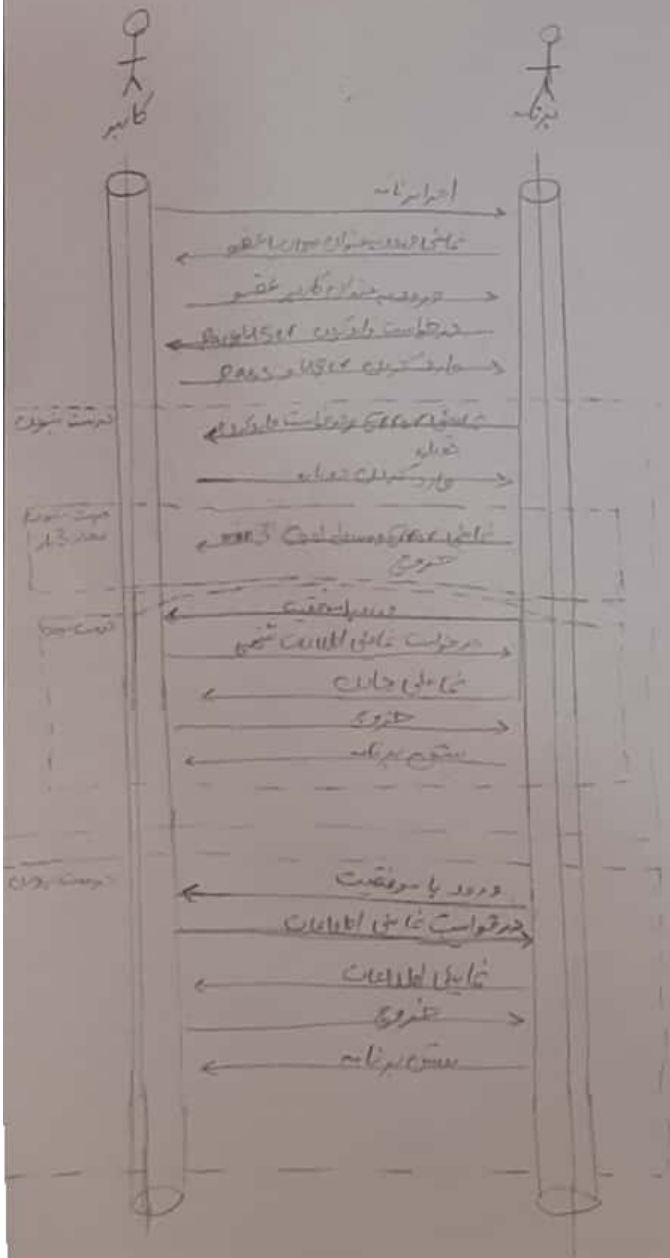 کاربر
برنامه
اجرا برنامه
نمایش ورود به عنوان مهمان یا عضو
ورود به عنوان کاربر عضو
درخواست وارد کردن pass و user
وارد کردن user و pass
درست نبودن
نمایش error و درخواست وارد کردن
دوباره
وارد کردن دوباره
نمایش error
خروج
درست بودن
ورود با موفقیت
درخواست نمایش اطلاعات شخصی
نمایش
خروج
بستن برنامه
درست بودن
ورود با موفقیت
درخواست نمایش اطلاعات
نمایش اطلاعات
خروج
بستن برنامه